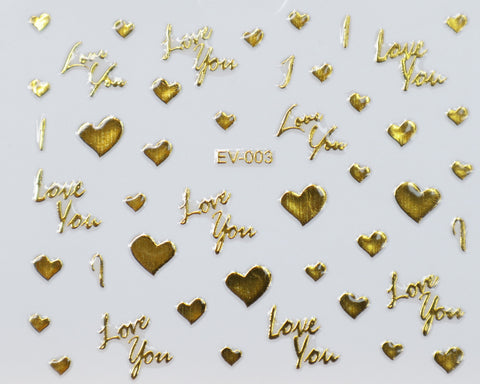 Love
You
Love
You
I
I
Love
You
I
Love
You
EV-003
Love
You
Love
You
I
I
Love
You
Love
You
Love
You